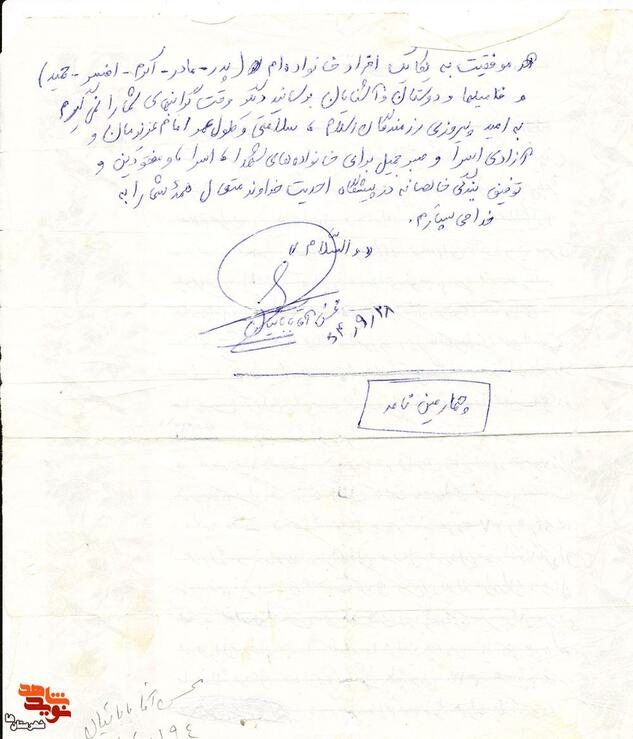 موفقیت به یکایک افراد خانواده‌ام (پدر - مادر - اکرم - افسر - حمید)
و فامیلها و دوستان و آشنایان برسانید دیگر وقت گرانبهای شما را نمی‌گیرم
به امید پیروزی رزمندگان اسلام، سلامتی و طول عمر امام عزیزمان و
آزادی اسرا و صبر جمیل برای خانواده‌های شهدا، اسرا، و مفقودین و
توفیق بندگی خالصانه در پیشگاه احدیت خداوند متعال همهٔ شما را به
خدا می سپارم.
« والسّلام »
محسن آقابابائیان
۶۴/۹/۲۸
چهارمین نامه
محسن آقا بابائیان
نوید شاهد
شهرستان ها